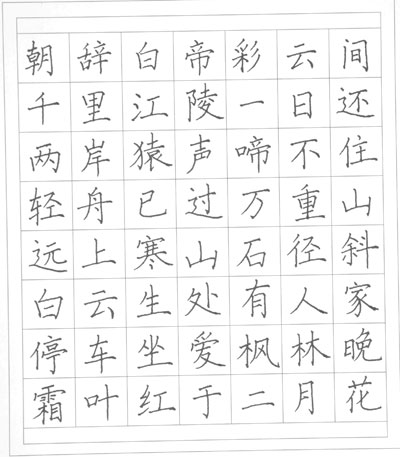 朝辞白帝彩云间
千里江陵一日还
两岸猿声啼不住
轻舟已过万重山
远上寒山石径斜
白云生处有人家
停车坐爱枫林晚
霜叶红于二月花